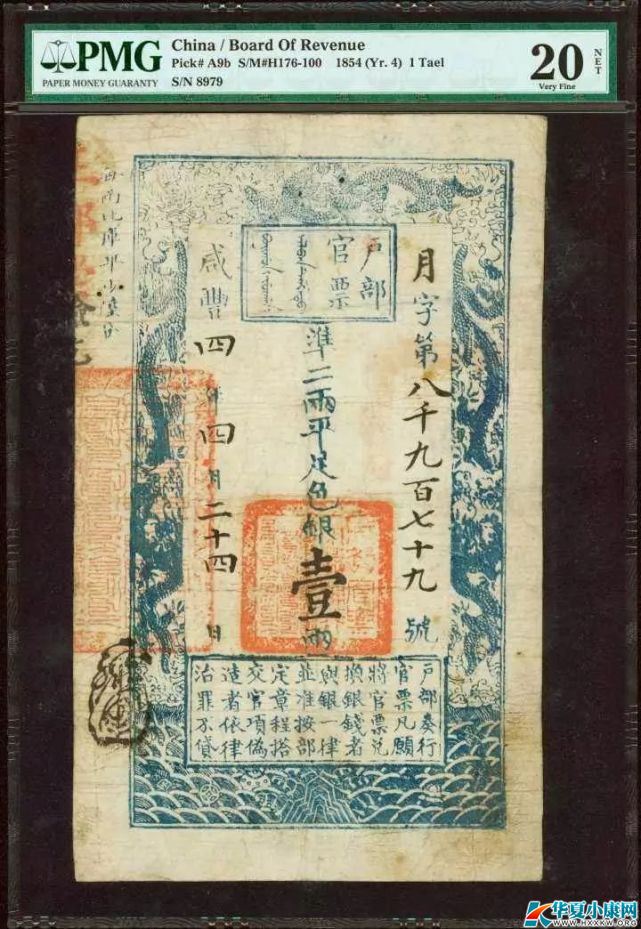 PMG
PAPER MONEY GUARANTY
China / Board Of Revenue
Pick# A9b S/M#H176-100 1854 (Yr. 4) 1 Tael
S/N 8979
20
NET
Very Fine
戶部
官票
月字第八千九百七十九號
準二兩平足色銀壹兩
咸豐四年四月二十四日
戶部奏行
官票凡願
將官票兌
換銀錢者
與銀一律
並准按部
定章程搭
交官項偽
造者依律
治罪不貸
华夏小康网
WWW.HXXKW.ORG